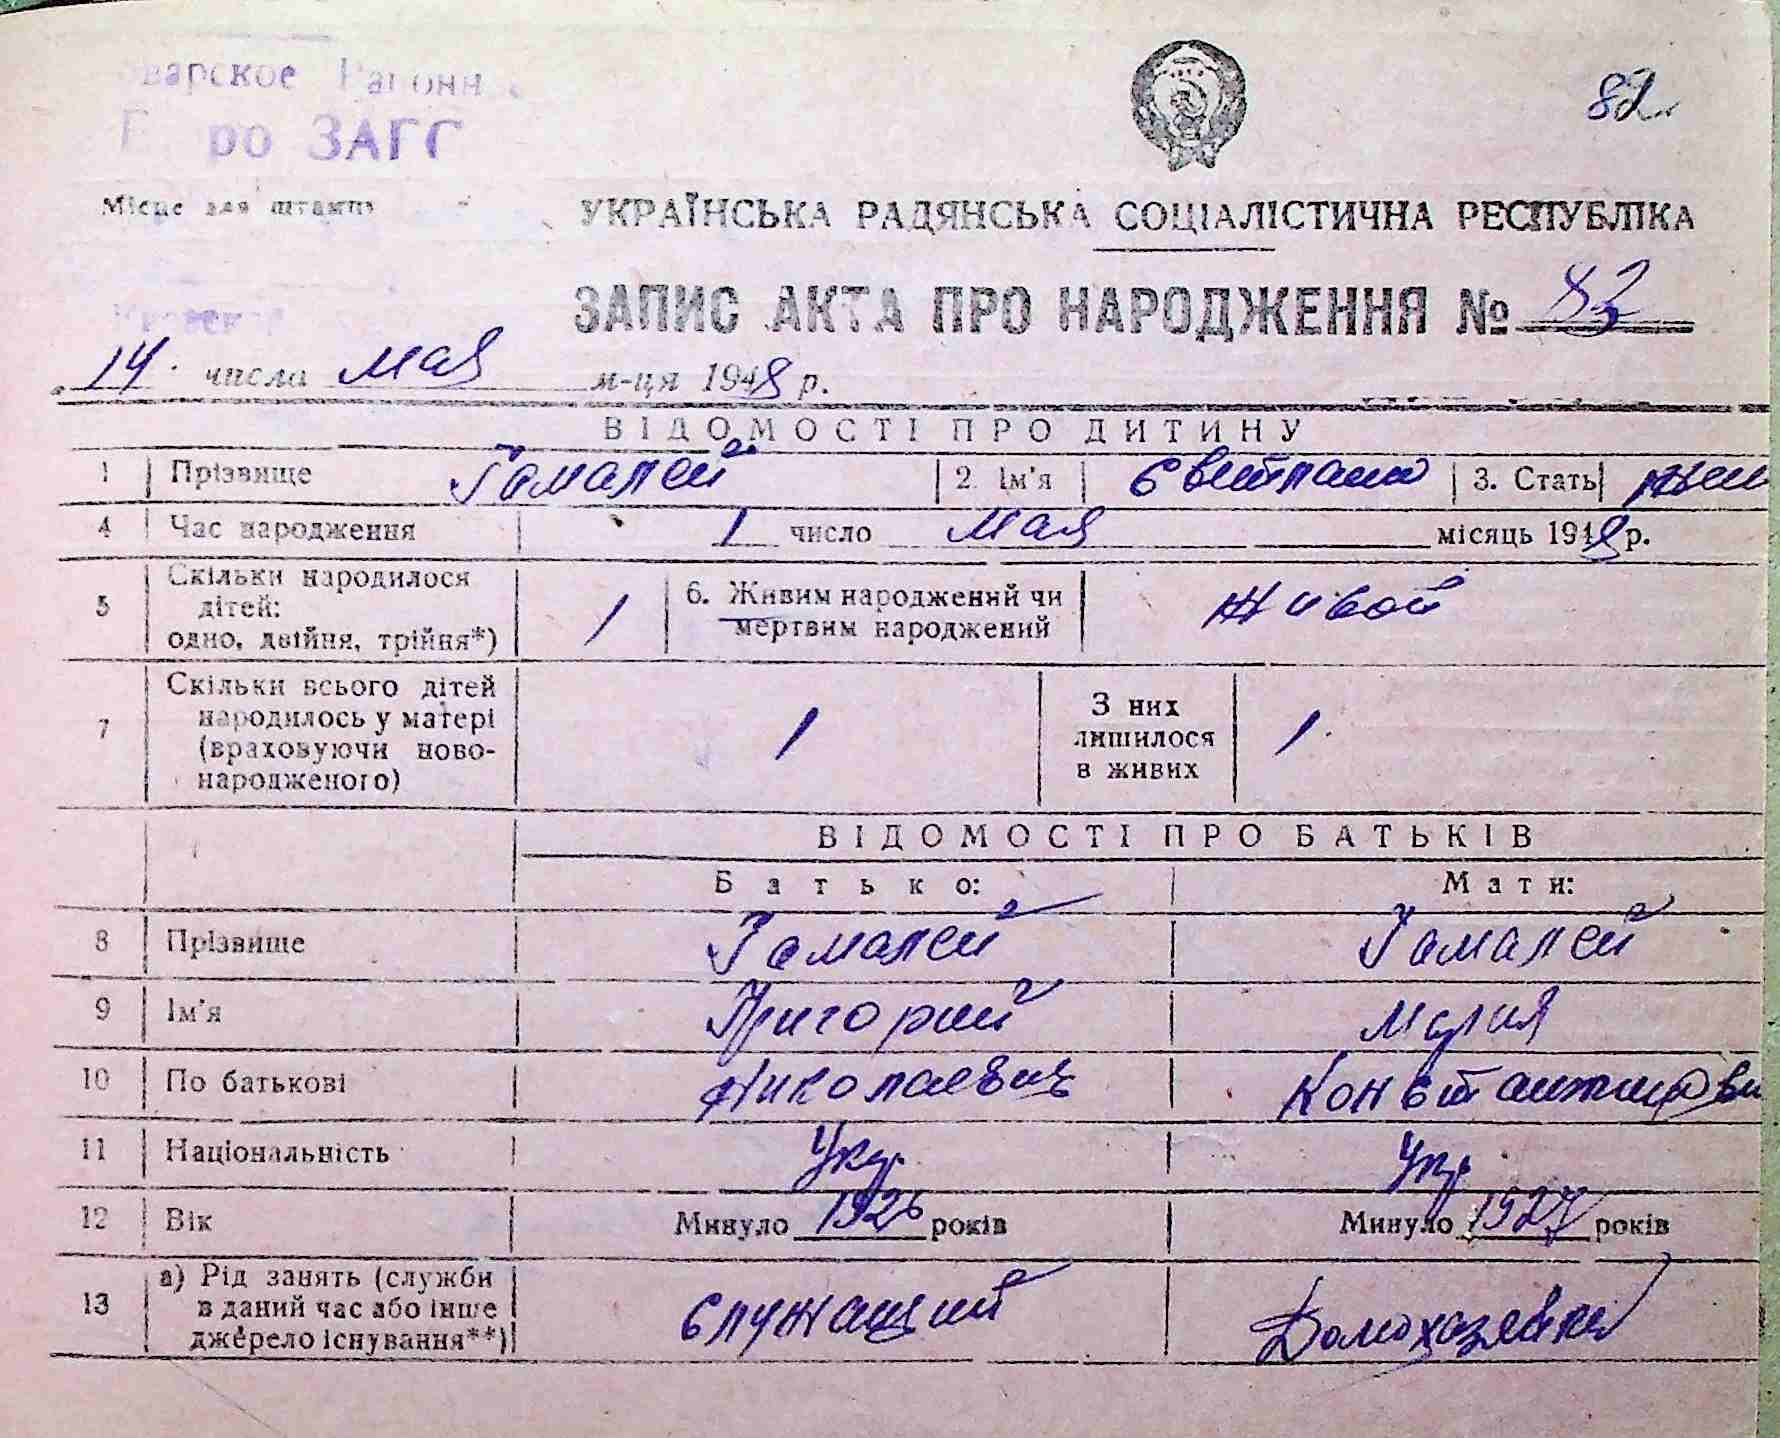 ЗАГС
82
Місце для штампу
УКРАЇНСЬКА РАДЯНСЬКА СОЦІАЛІСТИЧНА РЕСПУБЛІКА
ЗАПИС АКТА ПРО НАРОДЖЕННЯ № 82
„14" числа мая м-ця 1948 р.
ВІДОМОСТІ ПРО ДИТИНУ
1 Прізвище Гамалей 2. Ім'я Свитлана 3. Стать жен
4 Час народження 1 число мая місяць 1948 р.
5 Скільки народилося дітей: одно, двійня, трійня*) 1 6. Живим народжений чи мертвим народжений живой
7 Скільки всього дітей народилось у матері (враховуючи новонародженого) 1 З них лишилося в живих 1
ВІДОМОСТІ ПРО БАТЬКІВ
Батько: Мати:
8 Прізвище Гамалей Гамалей
9 Ім'я Григорий Мария
10 По батькові Николаевич Константинов
11 Національність Укр. Укр
12 Вік Минуло 1926 років Минуло 1927 років
13 а) Рід занять (служби в даний час або інше джерело існування**) Служащий Домохазяйка